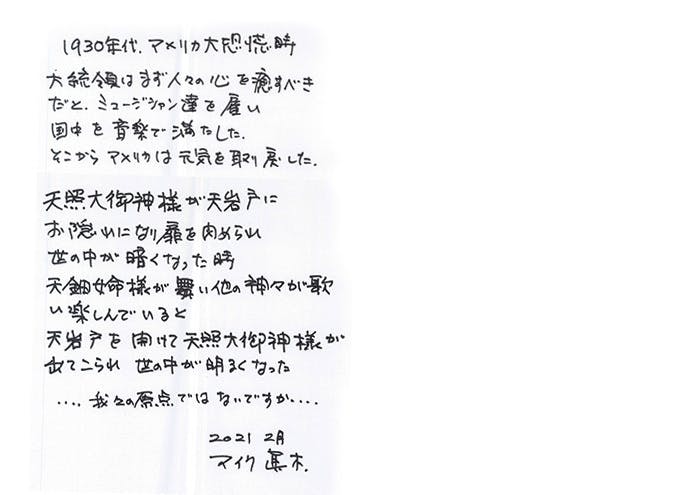 1930年代、アメリカ大恐慌時
大統領はまず人々の心を癒すべき
だと、ミュージシャン達を雇い
国中を音楽で満たした。
そこからアメリカは元気を取り戻した。
天照大御神様が天岩戸に
お隠れになり扉を閉められ
世の中が暗くなった時
天鈿女命様が舞い他の神々が歌
い楽しんでいると
天岩戸を開けて天照大御神様が
出てこられ 世の中が明るくなった
....我々の原点ではないですか....
2021 2月
マイク 眞木.